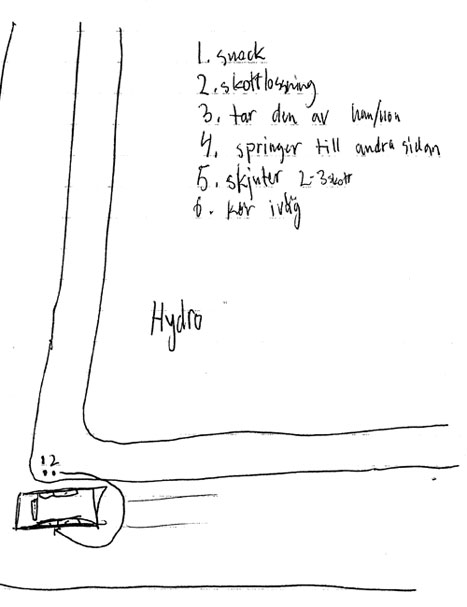 1. snack
2. skottlossning
3. tar den av han/hon
4. springer till andra sidan
5. skjuter 2-3 skott
6. kör iväg
Hydro
12